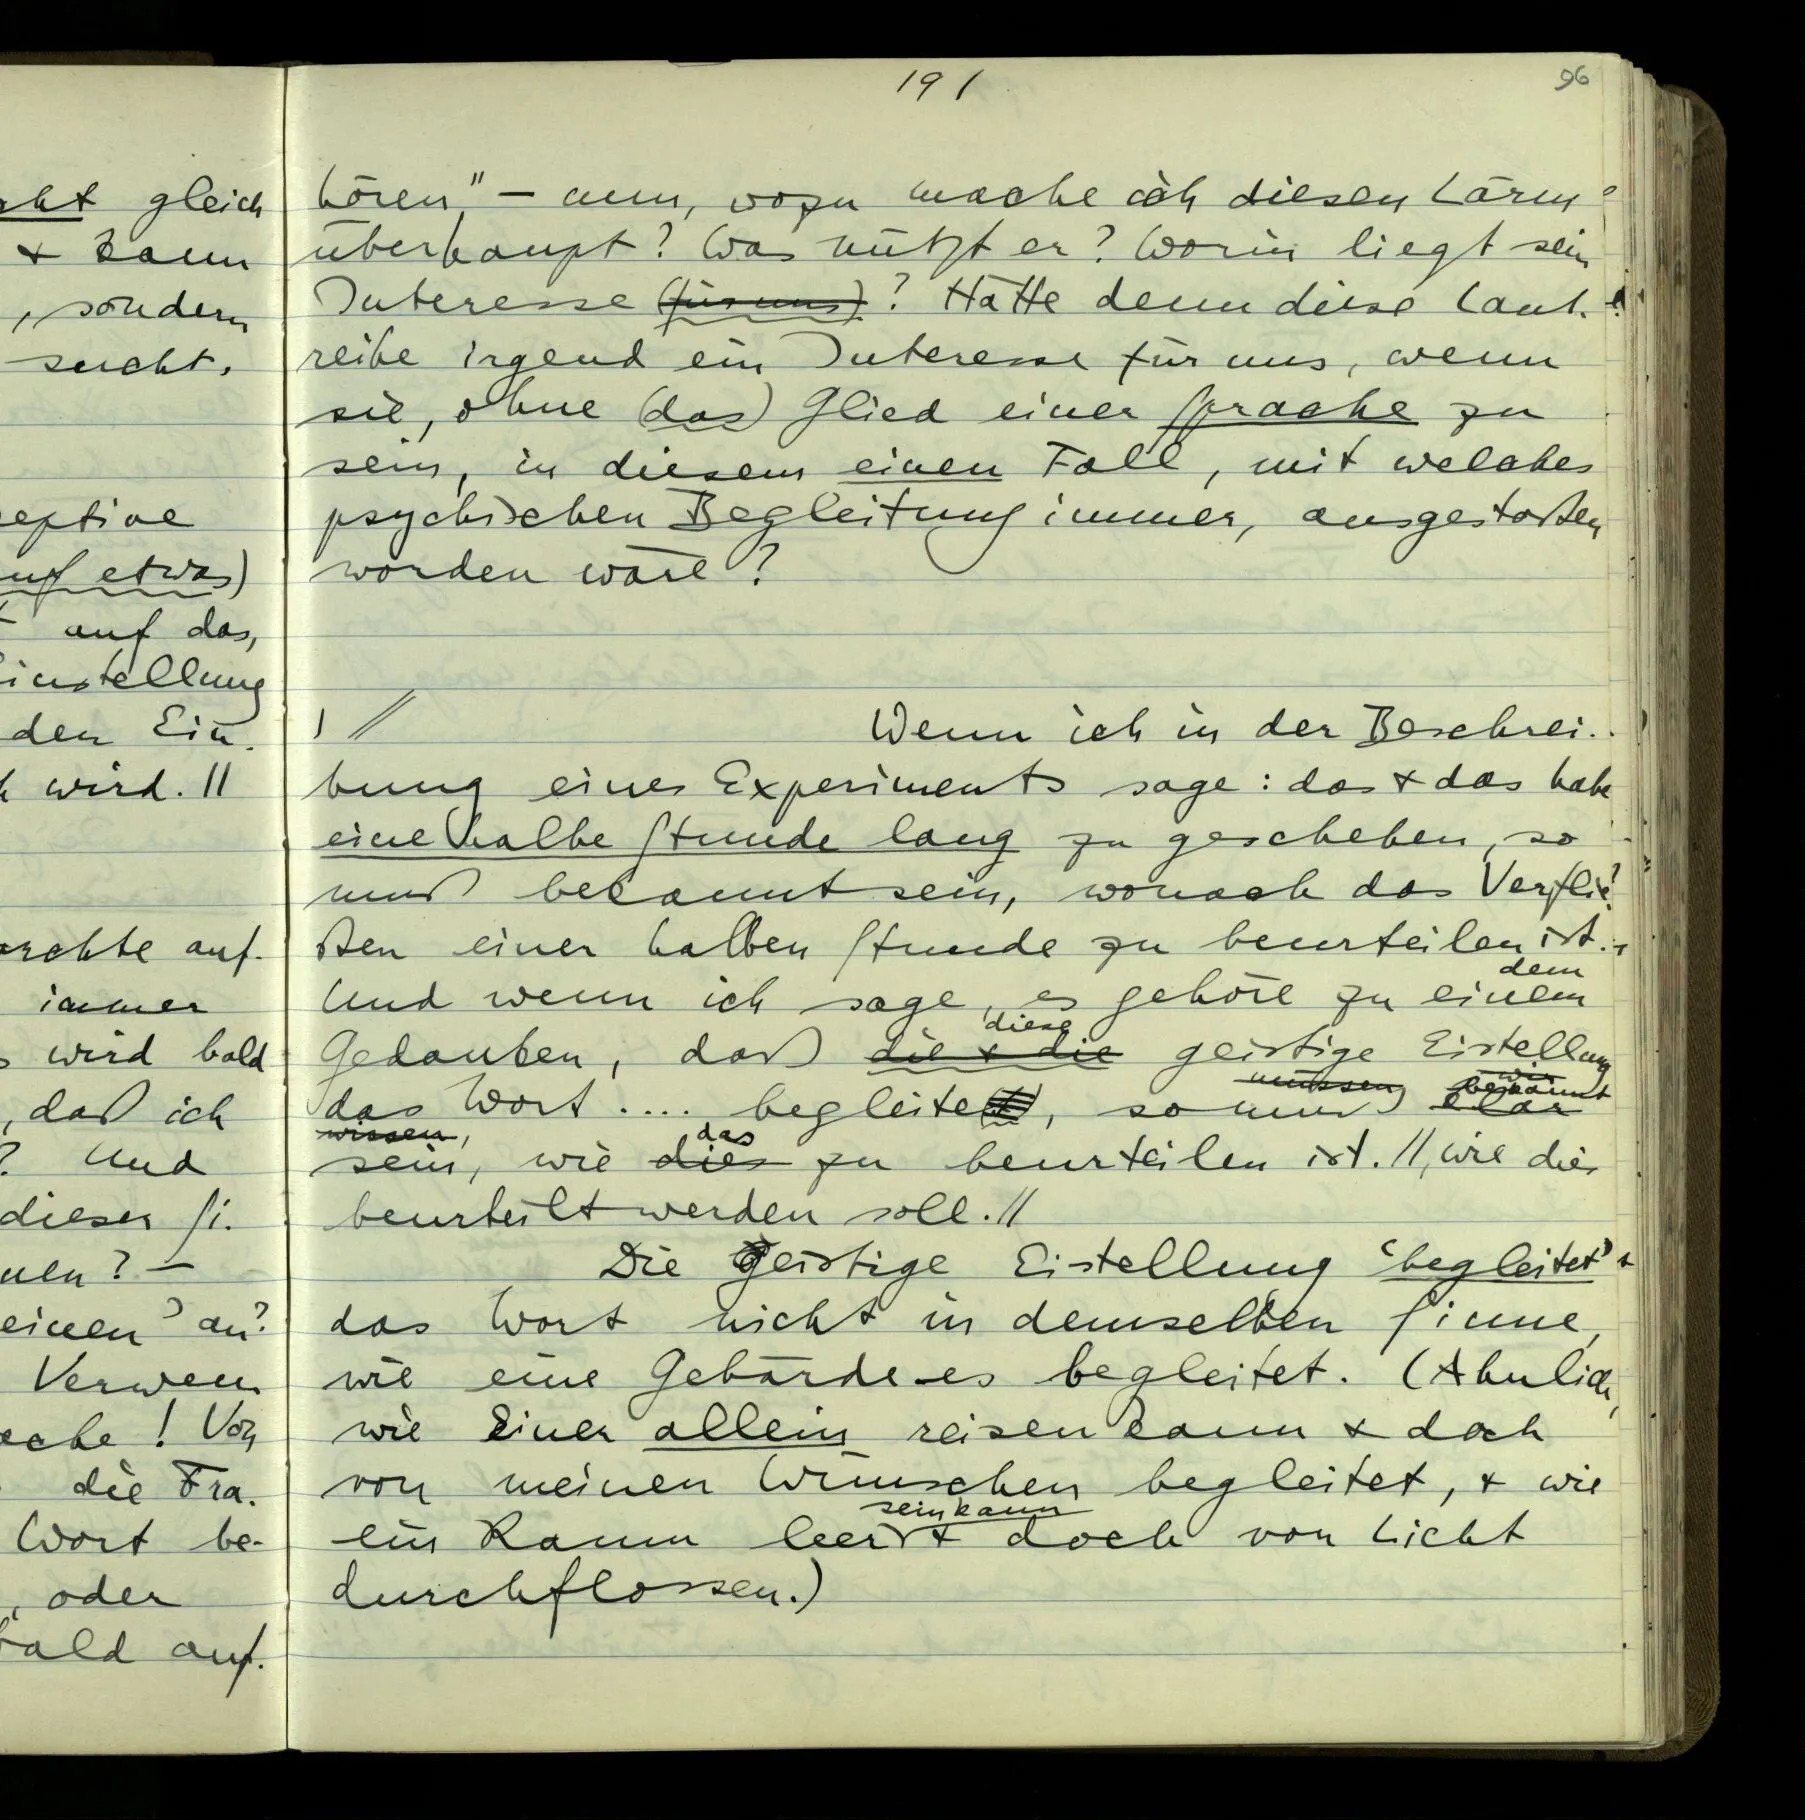 191
96
hören," – nun, wozu mache ich diesen Lärm
überhaupt? Was nützt er? Worin liegt sein
Interesse (für uns)? Hätte denn diese Laut-
reihe irgend ein Interesse für uns, wenn
sie, ohne (das) Glied einer Sprache zu
sein, in diesem einen Fall, mit welcher
psychischen Begleitung immer, ausgestoßen
worden wäre?
Wenn ich in der Beschrei-
bung eines Experiments sage: das & das habe
eine halbe Stunde lang zu geschehen, so
muß bekannt sein, wonach das Verflie-
ßen einer halben Stunde zu beurteilen ist.
dem
Und wenn ich sage, es gehöre zu einem
diese
Gedanken, daß die & die geistige Eistellung
müssen wir bekannt
das Wort .... begleitet, so muß klar
wissen, das
sein, wie dies zu beurteilen ist. //, wie dies
beurteilt werden soll. //
Die geistige Eistellung 'begleitet'
das Wort nicht in demselben Sinne,
wie eine Gebärde es begleitet. (Ähnlich,
wie Einer allein reisen kann & doch
von meinen Wünschen begleitet, & wie
sein kann
ein Raum leer & doch von Licht
durchflossen.)
gleich
& kann
, sondern
sucht.
auf etwas)
auf das,
Einstellung
den Ein-
wird. //
auf-
immer
wird bald
, daß ich
? Und
dieser Si-
? –
Verwen-
! Von
die Fra-
Wort be-
, oder
bald auf-